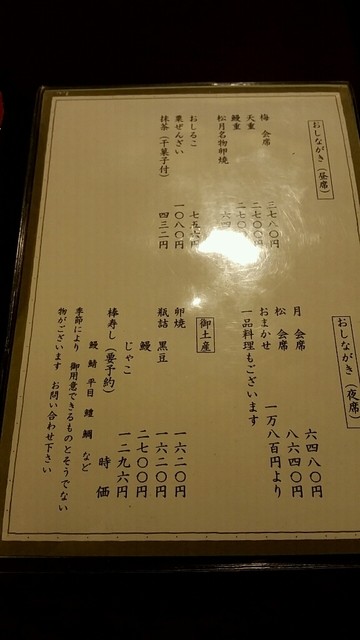 おしながき（昼席）
梅 会席 三七八〇円
天重 二七〇〇円
鰻重
松月名物卵焼
おしるこ 七五六円
栗ぜんざい 一〇八〇円
抹茶（干菓子付） 四三二円
おしながき（夜席）
月 会席 六四八〇円
松 会席 八六四〇円
おまかせ 一万八百円より
一品料理もございます
御土産
卵焼 一六二〇円
瓶詰 黒豆 一六二〇円
鰻 二七〇〇円
じゃこ 一二九六円
棒寿し（要予約） 時価
鰻 鯖 平目 鱧 鯛 など
季節により 御用意できるものとそうでない
物がございます お問い合わせ下さい